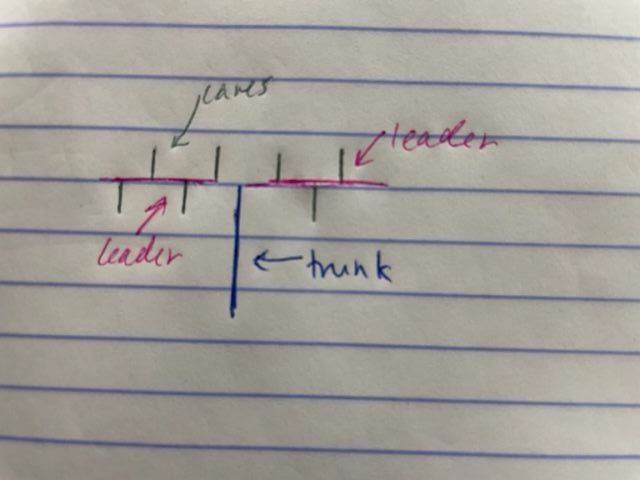 canes
leader
leader
trunk